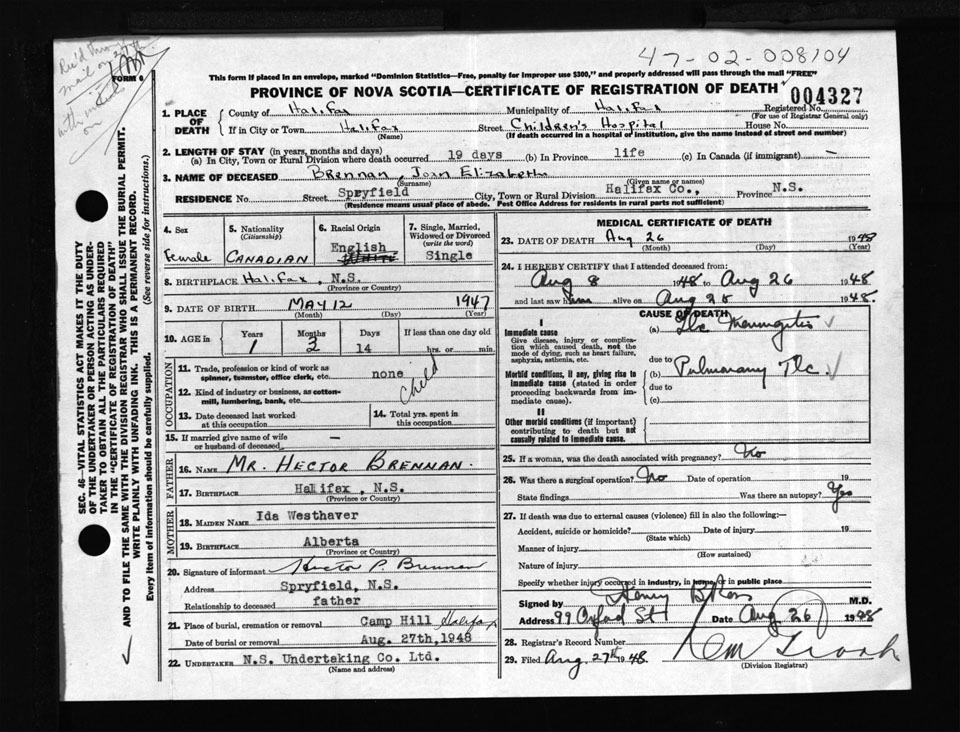 47-02-008104
Rec'd
mail on
FORM 6
This form if placed in an envelope, marked "Dominion Statistics—Free, penalty for improper use $300," and properly addressed will pass through the mail "FREE"
PROVINCE OF NOVA SCOTIA—CERTIFICATE OF REGISTRATION OF DEATH
004327
1. PLACE OF DEATH
County of Halifax Municipality of Halifax Registered No.
(For use of Registrar General only)
If in City or Town Halifax Street Children's Hospital House No.
(Name) (If death occurred in a hospital of institution, give the name instead of street and number)
2. LENGTH OF STAY (in years, months and days)
(a) In City, Town or Rural Division where death occurred 19 days (b) In Province life (c) In Canada (if immigrant) —
3. NAME OF DECEASED Brennan, Joan Elizabeth
(Surname) (Given name or names)
RESIDENCE No. Street Spryfield City, Town or Rural Division Halifax Co., Province N.S.
(Residence means usual place of abode. Post Office Address for residents in rural parts not sufficient)
4. Sex Female
5. Nationality (Citizenship) CANADIAN
6. Racial Origin English White
7. Single, Married, Widowed or Divorced (write the word) Single
8. BIRTHPLACE Halifax, N.S.
(Province or Country)
9. DATE OF BIRTH MAY 12 1947
(Month) (Day) (Year)
10. AGE in Years Months Days If less than one day old
1 3 14 hrs. or min.
OCCUPATION
11. Trade, profession or kind of work as spinner, teamster, office clerk, etc. none
Child
12. Kind of industry or business, as cotton-mill, lumbering, bank, etc.
13. Date deceased last worked at this occupation
14. Total yrs. spent in this occupation
15. If married give name of wife or husband of deceased —
FATHER
16. NAME MR. HECTOR BRENNAN.
17. BIRTHPLACE Halifax, N.S.
(Province or Country)
MOTHER
18. MAIDEN NAME Ida Westhaver
19. BIRTHPLACE Alberta
(Province or Country)
20. Signature of informant Hector P. Brennan
Address Spryfield, N.S.
Relationship to deceased father
21. Place of burial, cremation or removal Camp Hill Halifax
Date of burial or removal Aug. 27th, 1948
22. UNDERTAKER N.S. Undertaking Co. Ltd.
(Name and address)
MEDICAL CERTIFICATE OF DEATH
23. DATE OF DEATH Aug 26 1948
(Month) (Day) (Year)
24. I HEREBY CERTIFY that I attended deceased from:
Aug 8 1948 to Aug 26 1948
and last saw alive on Aug 25 1948.
CAUSE OF DEATH
I
Immediate cause (a) Tbc Meningitis
Give disease, injury or complication which caused death, not the mode of dying, such as heart failure, asphyxia, asthenia, etc.
due to
Morbid conditions, if any, giving rise to immediate cause (stated in order proceeding backwards from immediate cause).
(b) Pulmonary Tbc.
due to
(c)
II
Other morbid conditions (if important) contributing to death but not causally related to immediate cause.
25. If a woman, was the death associated with pregnancy? No
26. Was there a surgical operation? No Date of operation 19
State findings Was there an autopsy? Yes
27. If death was due to external causes (violence) fill in also the following:—
Accident, suicide or homicide? Date of injury 19
(State which)
Manner of injury
(How sustained)
Nature of injury
Specify whether injury occurred in industry, in home, or in public place
Signed by Henry B Ross M.D.
Address 99 Oxford St Date Aug 26 1948
28. Registrar's Record Number
29. Filed Aug 27th 1948
(Division Registrar)
SEC. 46—VITAL STATISTICS ACT MAKES IT THE DUTY
OF THE UNDERTAKER OR PERSON ACTING AS UNDER-
TAKER TO OBTAIN ALL THE PARTICULARS REQUIRED
IN THE "CERTIFICATE OF REGISTRATION OF DEATH"
AND TO FILE THE SAME WITH THE DIVISION REGISTRAR WHO SHALL ISSUE THE BURIAL PERMIT.
WRITE PLAINLY WITH UNFADING INK. THIS IS A PERMANENT RECORD.
Every item of information should be carefully supplied. (See reverse side for instructions.)